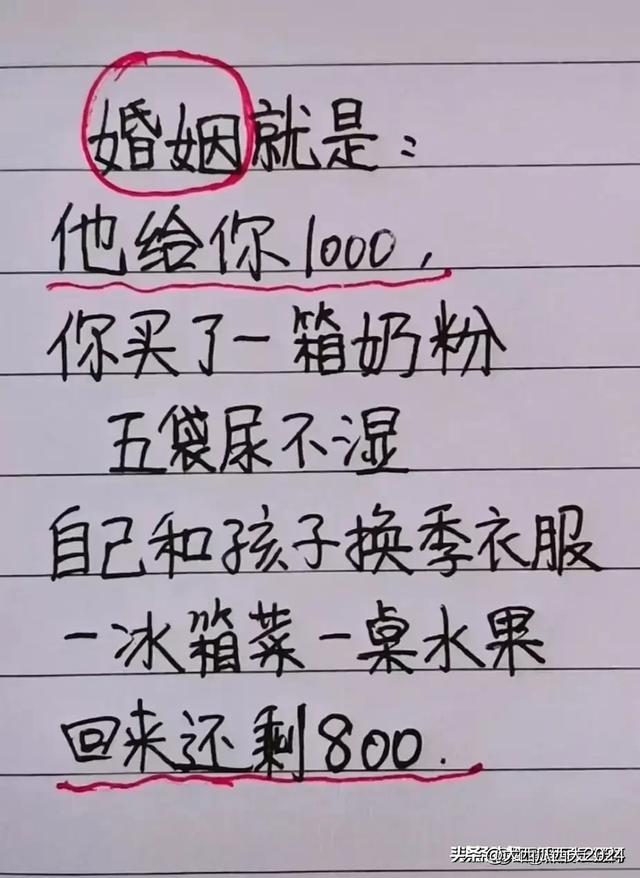 婚姻就是：
他给你1000，
你买了一箱奶粉
五袋尿不湿
自己和孩子换季衣服
一冰箱菜一桌水果
回来还剩800.